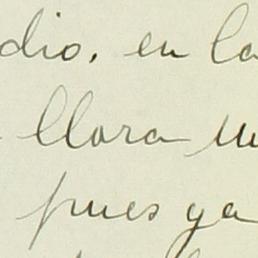 dio, en la
llora un
pues ya